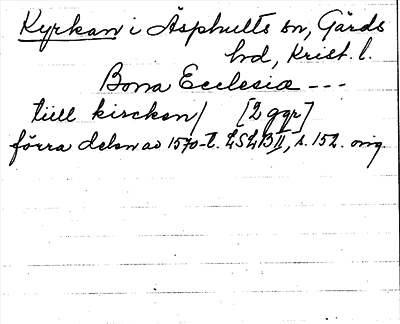 Kyrkan i Äsphults sn, Gärds
hd, Krist. l.
Bona Ecclesiæ ---
tiill kircken/ [2 ggr]
förra delen av 1570-t. LSLB II, s. 152. orig.